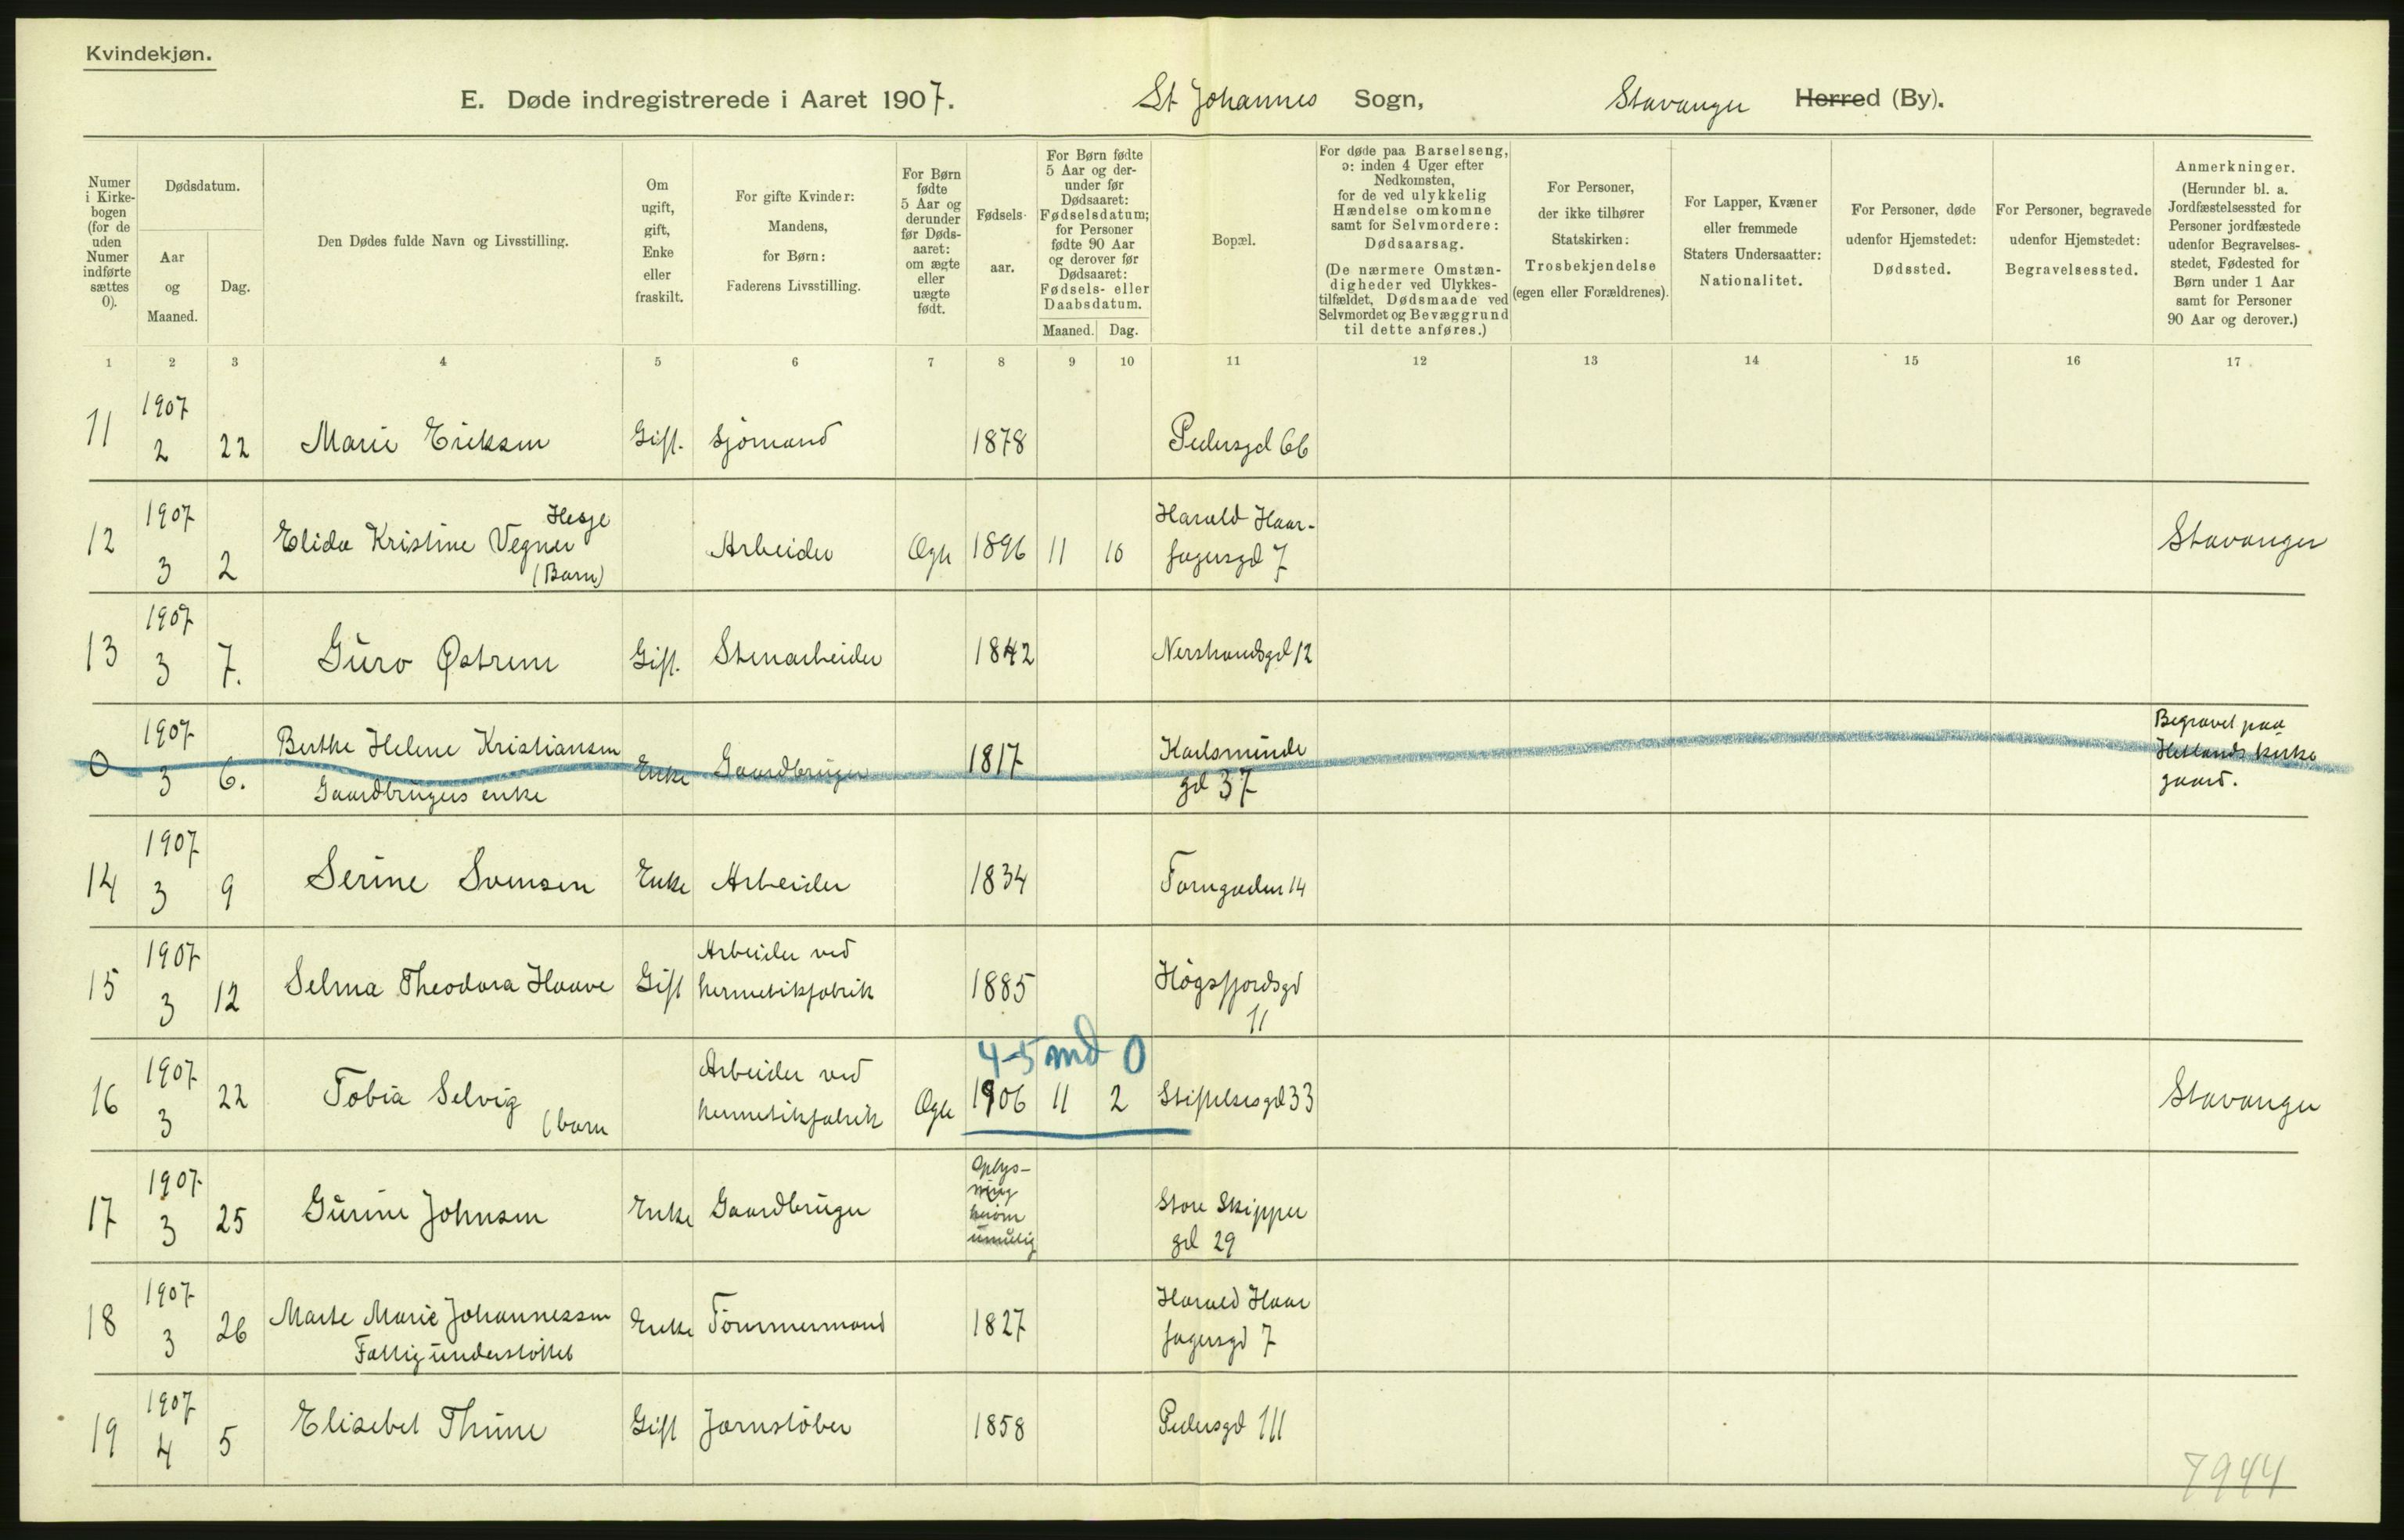 Kvindekjøn.
E. Døde indregistrerede i Aaret 1907. St Johannes Sogn, Stavanger Herred (By).
Numer i Kirkebogen (for de uden Numer indførte sættes 0).
Dødsdatum.
Aar og Maaned.
Dag.
Den Dødes fulde Navn og Livsstilling.
Om ugift, gift, Enke eller fraskilt.
For gifte Kvinder: Mandens, for Børn: Faderens Livsstilling.
For Børn fødte 5 Aar og derunder før Dødsaaret: om ægte eller uægte født.
Fødselsaar.
For Børn fødte 5 Aar og derunder før Dødsaaret: Fødselsdatum; for Personer fødte 90 Aar og derover før Dødsaaret: Fødsels- eller Daabsdatum.
Maaned. Dag.
Bopæl.
For døde paa Barselseng, ɔ: inden 4 Uger efter Nedkomsten, for de ved ulykkelig Hændelse omkomne samt for Selvmordere: Dødsaarsag. (De nærmere Omstændigheder ved Ulykkestilfældet, Dødsmaade ved Selvmordet og Bevæggrund til dette anføres.)
For Personer, der ikke tilhører Statskirken: Trosbekjendelse (egen eller Forældrenes).
For Lapper, Kvæner eller fremmede Staters Undersaatter: Nationalitet.
For Personer, døde udenfor Hjemstedet: Dødssted.
For Personer, begravede udenfor Hjemstedet: Begravelsessted.
Anmerkninger. (Herunder bl. a. Jordfæstelsessted for Personer jordfæstede udenfor Begravelsesstedet, Fødested for Børn under 1 Aar samt for Personer 90 Aar og derover.)
1 2 3 4 5 6 7 8 9 10 11 12 13 14 15 16 17
11 1907 2 22 Marie Eriksen Gift. Sjömand 1878 Pedersgd 66
12 1907 3 2 Elida Kristine Vegner Hesje (Barn) Arbeider Ægte 1896 11 10 Harald Haarfagersgd 7 Stavanger
13 1907 3 7. Guro Østrem Gift. Stenarbeider 1842 Nershandsgd 12
0 1907 3 6. Berthe Helene Kristiansen Gaardbrugers enke Enke Gaardbruger 1817 Karlsminde gd 37 Begravet paa Hetlands kirke gaard.
14 1907 3 9 Serine Svensen Enke Arbeider 1834 Tarngaden 14
15 1907 3 12 Selma Theodora Haave Gift Arbeider ved hermetikfabrik 1885 Högsfjordsgd 11
4-5 md 0
16 1907 3 22 Tobia Selvig (barn Arbeider ved hermetikfabrik Ægte 1906 11 2 Stiftelsesgd 33 Stavanger
17 1907 3 25 Gurine Johnsen Enke Gaardbruger Oplysning herom umulig Store Skipper gd 29
18 1907 3 26 Marte Marie Johannessen Fattigunderstöttet Enke Tömmermand 1827 Harald Haar fagersgd 7
19 1907 4 5 Elisebet Thime Gift Jærnstöber 1858 Pedersgd 111
7944